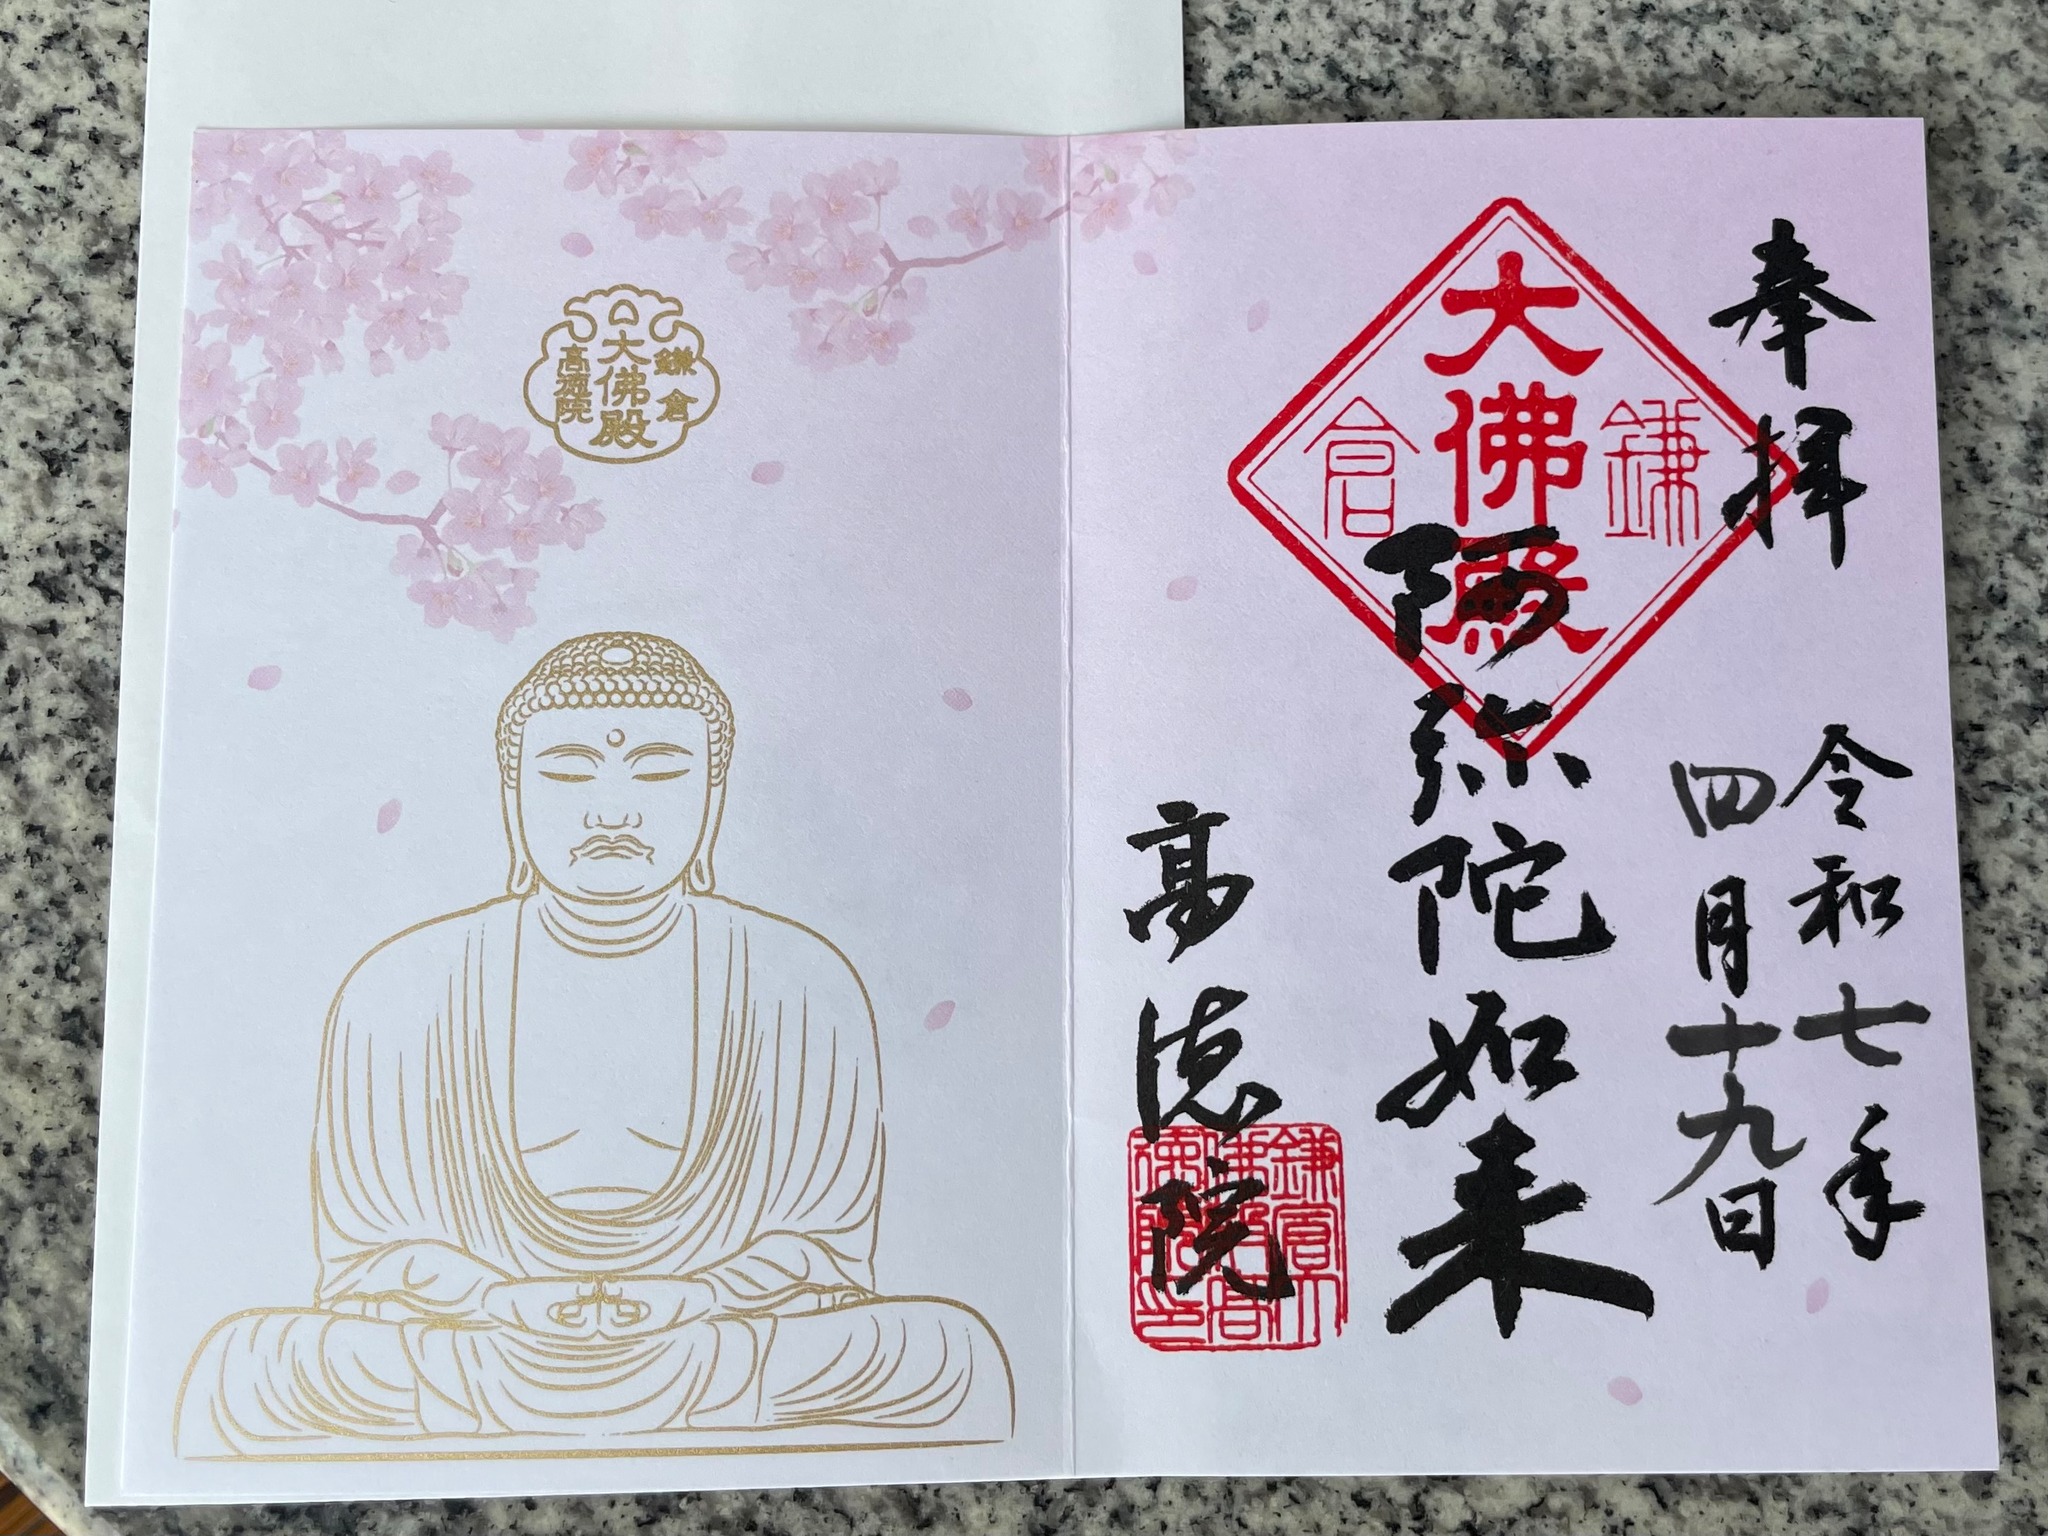 奉拝
令和七年
四月十九日
鎌倉
大佛殿
阿弥陀如来
高徳院
鎌倉大
佛殿高
徳院印
鎌倉
大佛殿
高徳院